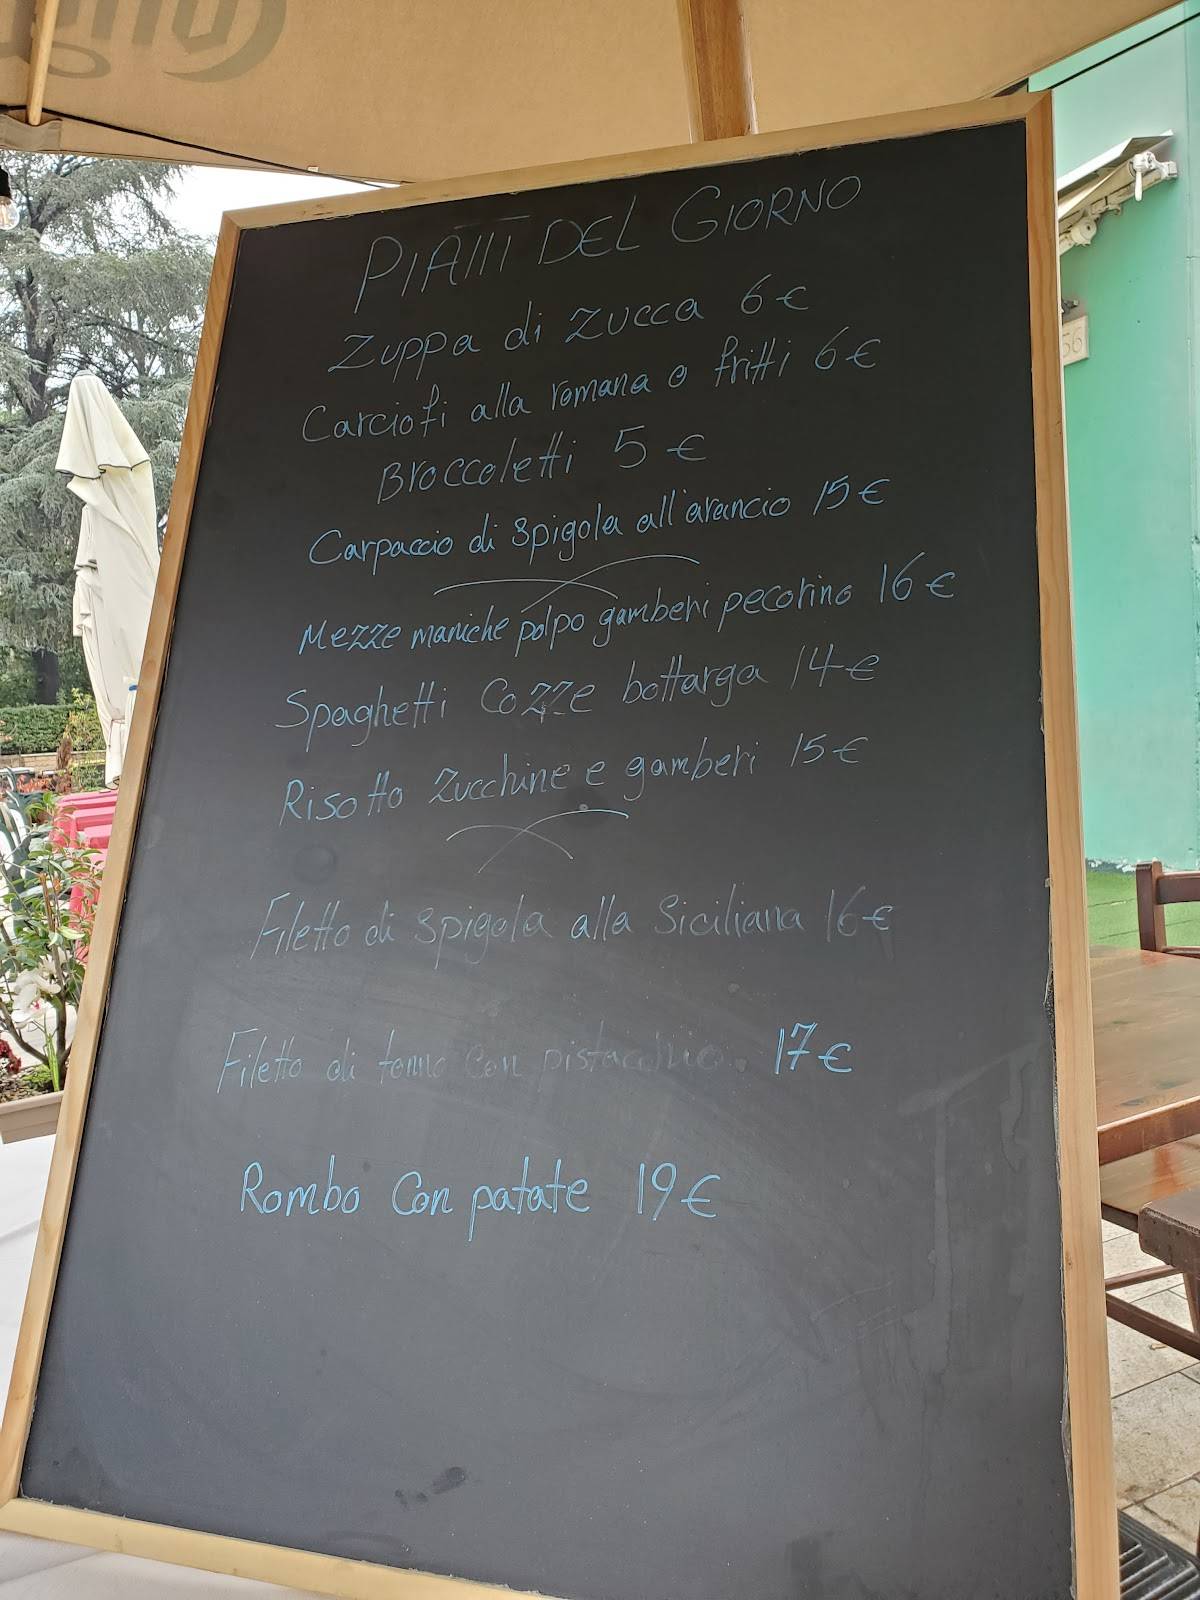 PIATTI DEL GIORNO
Zuppa di zucca 6€
Carciofi alla romana o fritti 6€
Broccoletti 5€
Carpaccio di spigola all'arancio 15€
Mezze maniche polpo gamberi pecorino 16€
Spaghetti Cozze bottarga 14€
Risotto Zucchine e gamberi 15€
Filetto di spigola alla Siciliana 16€
Filetto di tonno con pistacchio 17€
Rombo Con patate 19€
56